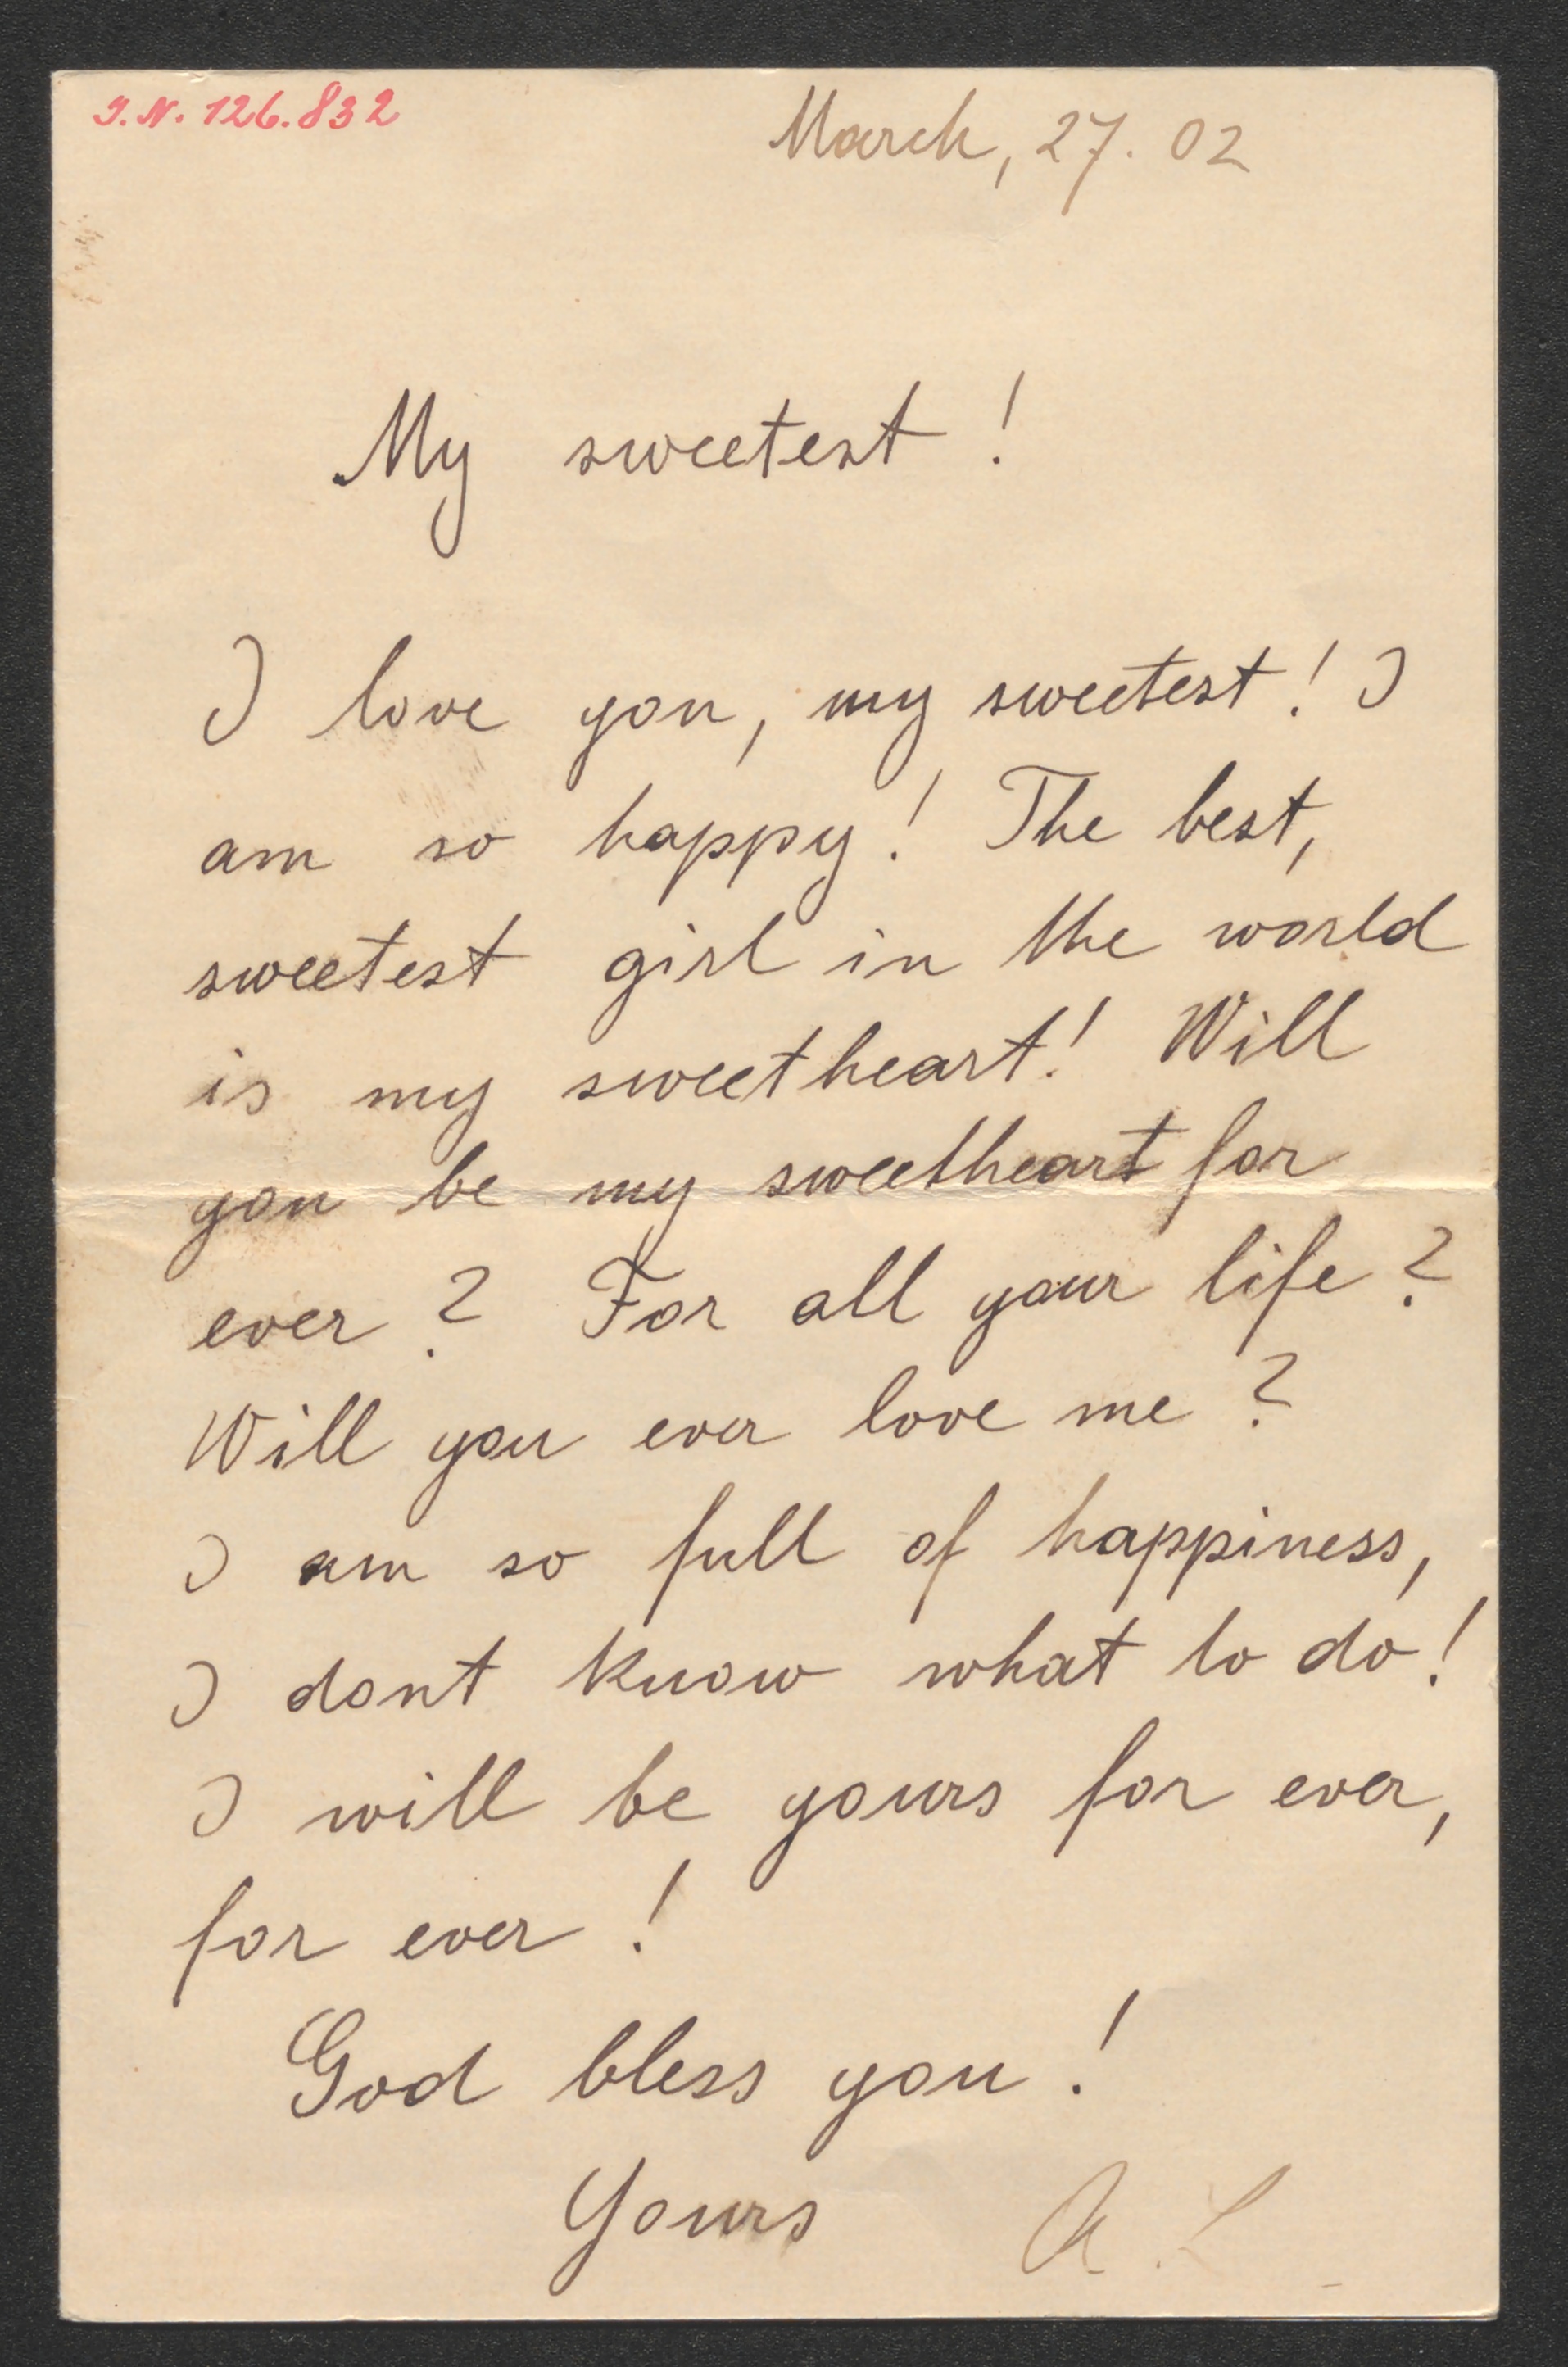 I.N. 126.832
March, 27. 02
My sweetest !
I love you, my sweetest! I
am so happy! The best,
sweetest girl in the world
is my sweetheart! Will
you be my sweetheart for
ever ? For all your life ?
Will you ever love me ?
I am so full of happiness,
I dont know what to do!
I will be yours for ever,
for ever !
God bless you !
Yours A. L